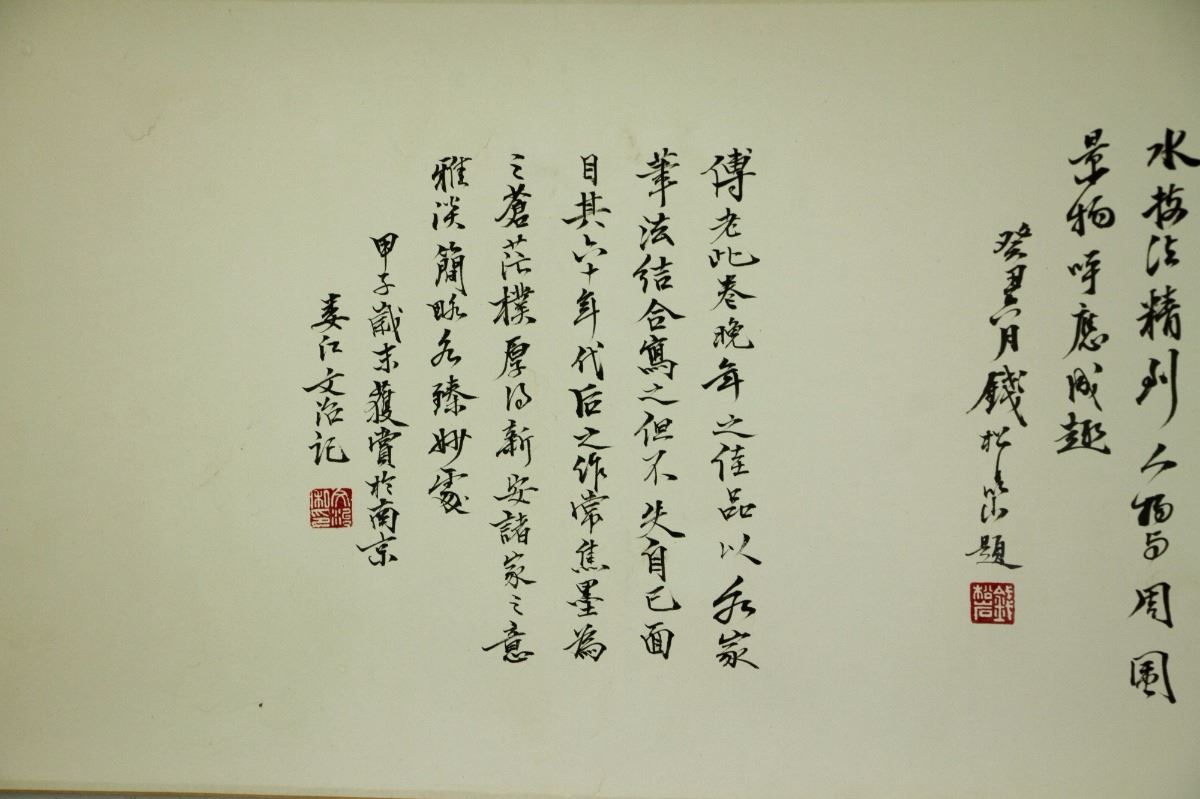 水 技法精到人物与周围
景物呼應成趣
癸丑六月錢松喦題
傅老此卷晚年之佳品以各家
筆法结合寫之但不失自己面
目其六十年代后之作常焦墨為
之蒼茫樸厚得新安諸家之意
雅淡簡略各臻妙處
甲子歲末獲賞於南京
婁江文治记